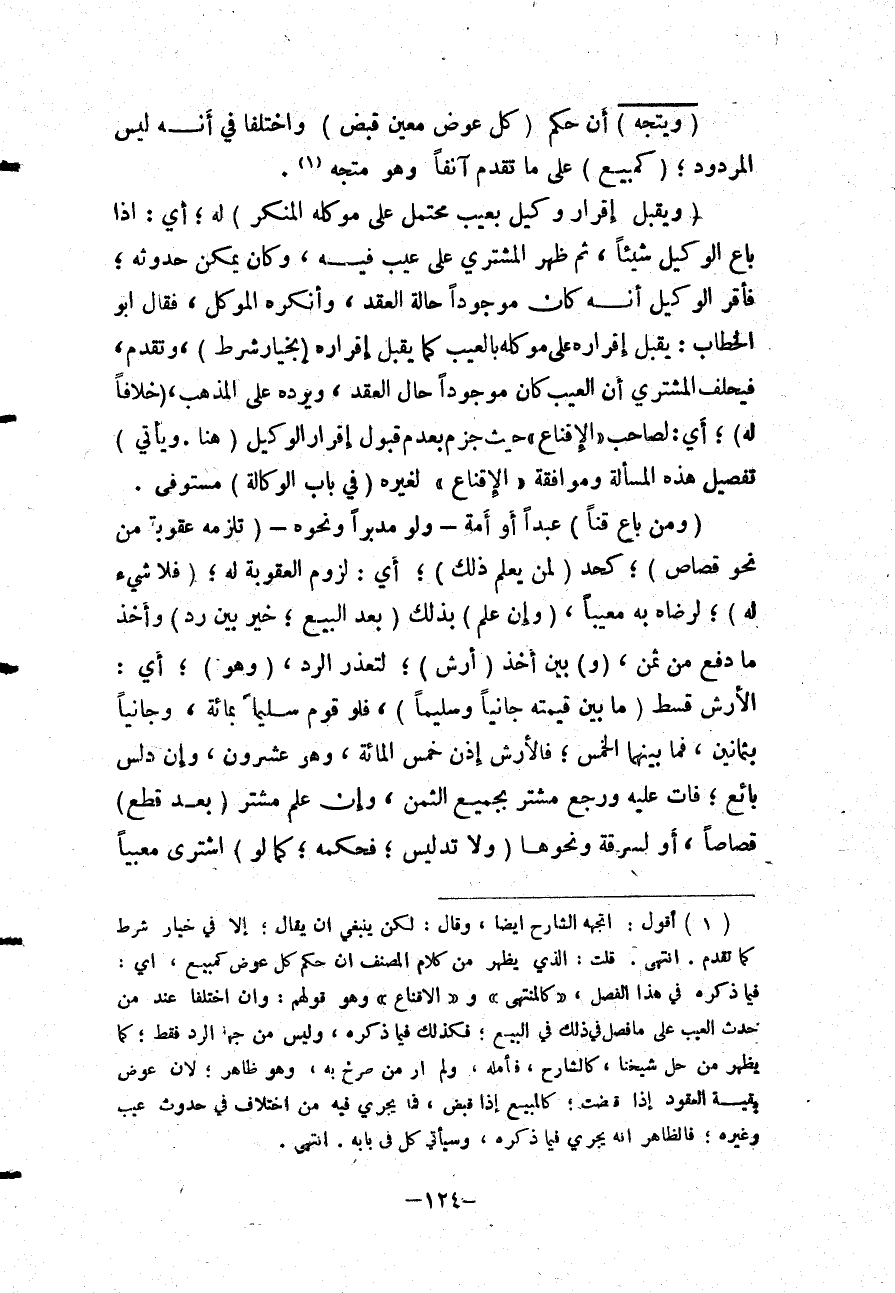 ( ويتجه ) أن حكم ( كل عوض معين قبض ) واختلفا في أنـــه ليس
المردود ؛ ( كمبيـع ) على ما تقدم آنفاً وهو متجه (١) .
( ويقبل إقرار وكيل بعيب محتمل على موكله المنكر ) له ؛ أي : اذا
باع الوكيل شيئاً ، ثم ظهر المشتري على عيب فيـــه ، وكان يمكن حدوثه ؛
فأقر الوكيل أنـــه كان موجوداً حالة العقد ، وأنكره الموكل ، فقال ابو
الخطاب : يقبل إقراره على موكله بالعيب كما يقبل إقراره ( بخيار شرط ) ، وتقدم ،
فيحلف المشتري أن العيب كان موجوداً حال العقد ، ويرده على المذهب ، (خلافاً
له) ؛ أي : لصاحب «الإقناع» حيث جزم بعدم قبول إقرار الوكيل ( هنا . ويأتي )
تفصيل هذه المسألة وموافقة « الإقناع » لغيره ( في باب الوكالة ) مستوفى .
( ومن باع قناً ) عبداً أو أمة – ولو مدبراً ونحوه – ( تلزمه عقوبة من
نحو قصاص ) ؛ كحد ( لمن يعلم ذلك ) ؛ أي : لزوم العقوبة له ؛ ( فلا شيء
له ) ؛ لرضاه به معيباً ، ( وإن علم ) بذلك ( بعد البيع ؛ خير بين رد ) وأخذ
ما دفع من ثمن ، (و) بين أخذ ( أرش ) ؛ لتعذر الرد ، ( وهو ) ؛ أي :
الأرش قسط ( ما بين قيمته جانياً وسليماً ) ، فلو قوم سليماً بمائة ، وجانياً
بثمانين ، فما بينهما الخمس ؛ فالأرش إذن خمس المائة ، وهو عشرون ، وإن دلس
بائع ؛ فات عليه ورجع مشتر بجميع الثمن ، وإن علم مشتر ( بعـد قطع )
قصاصاً ، أو لسرقة ونحوهـا ( ولا تدليس ؛ فحكمه ؛ كما لو ) اشترى معيباً
( ١ ) أقول : اتجهه الشارح ايضا ، وقال : لكن ينبغي ان يقال ؛ إلا في خيار شرط
كما تقدم . انتهى . قلت : الذي يظهر من كلام المصنف ان حكم كل عوض كمبيع ، اي :
فيما ذكره في هذا الفصل ، «كالمنتهى» و « الاقناع » وهو قولهم : وان اختلفا عند من
حدث العيب على ما فصل في ذلك في البيع ؛ فكذلك فيما ذكره ، وليس من جهة الرد فقط ؛ كما
يظهر من حل شيخنا ، كالشارح ، فأمله ، ولم ار من صرح به ، وهو ظاهر ؛ لان عوض
بقيـــة العقود إذا قبضت ؛ كالمبيع إذا قبض ، فما يجري فيه من اختلاف في حدوث عيب
وغيره ؛ فالظاهر انه يجري فيما ذكره ، وسيأتي كل في بابه . انتهى .
–١٢٤–